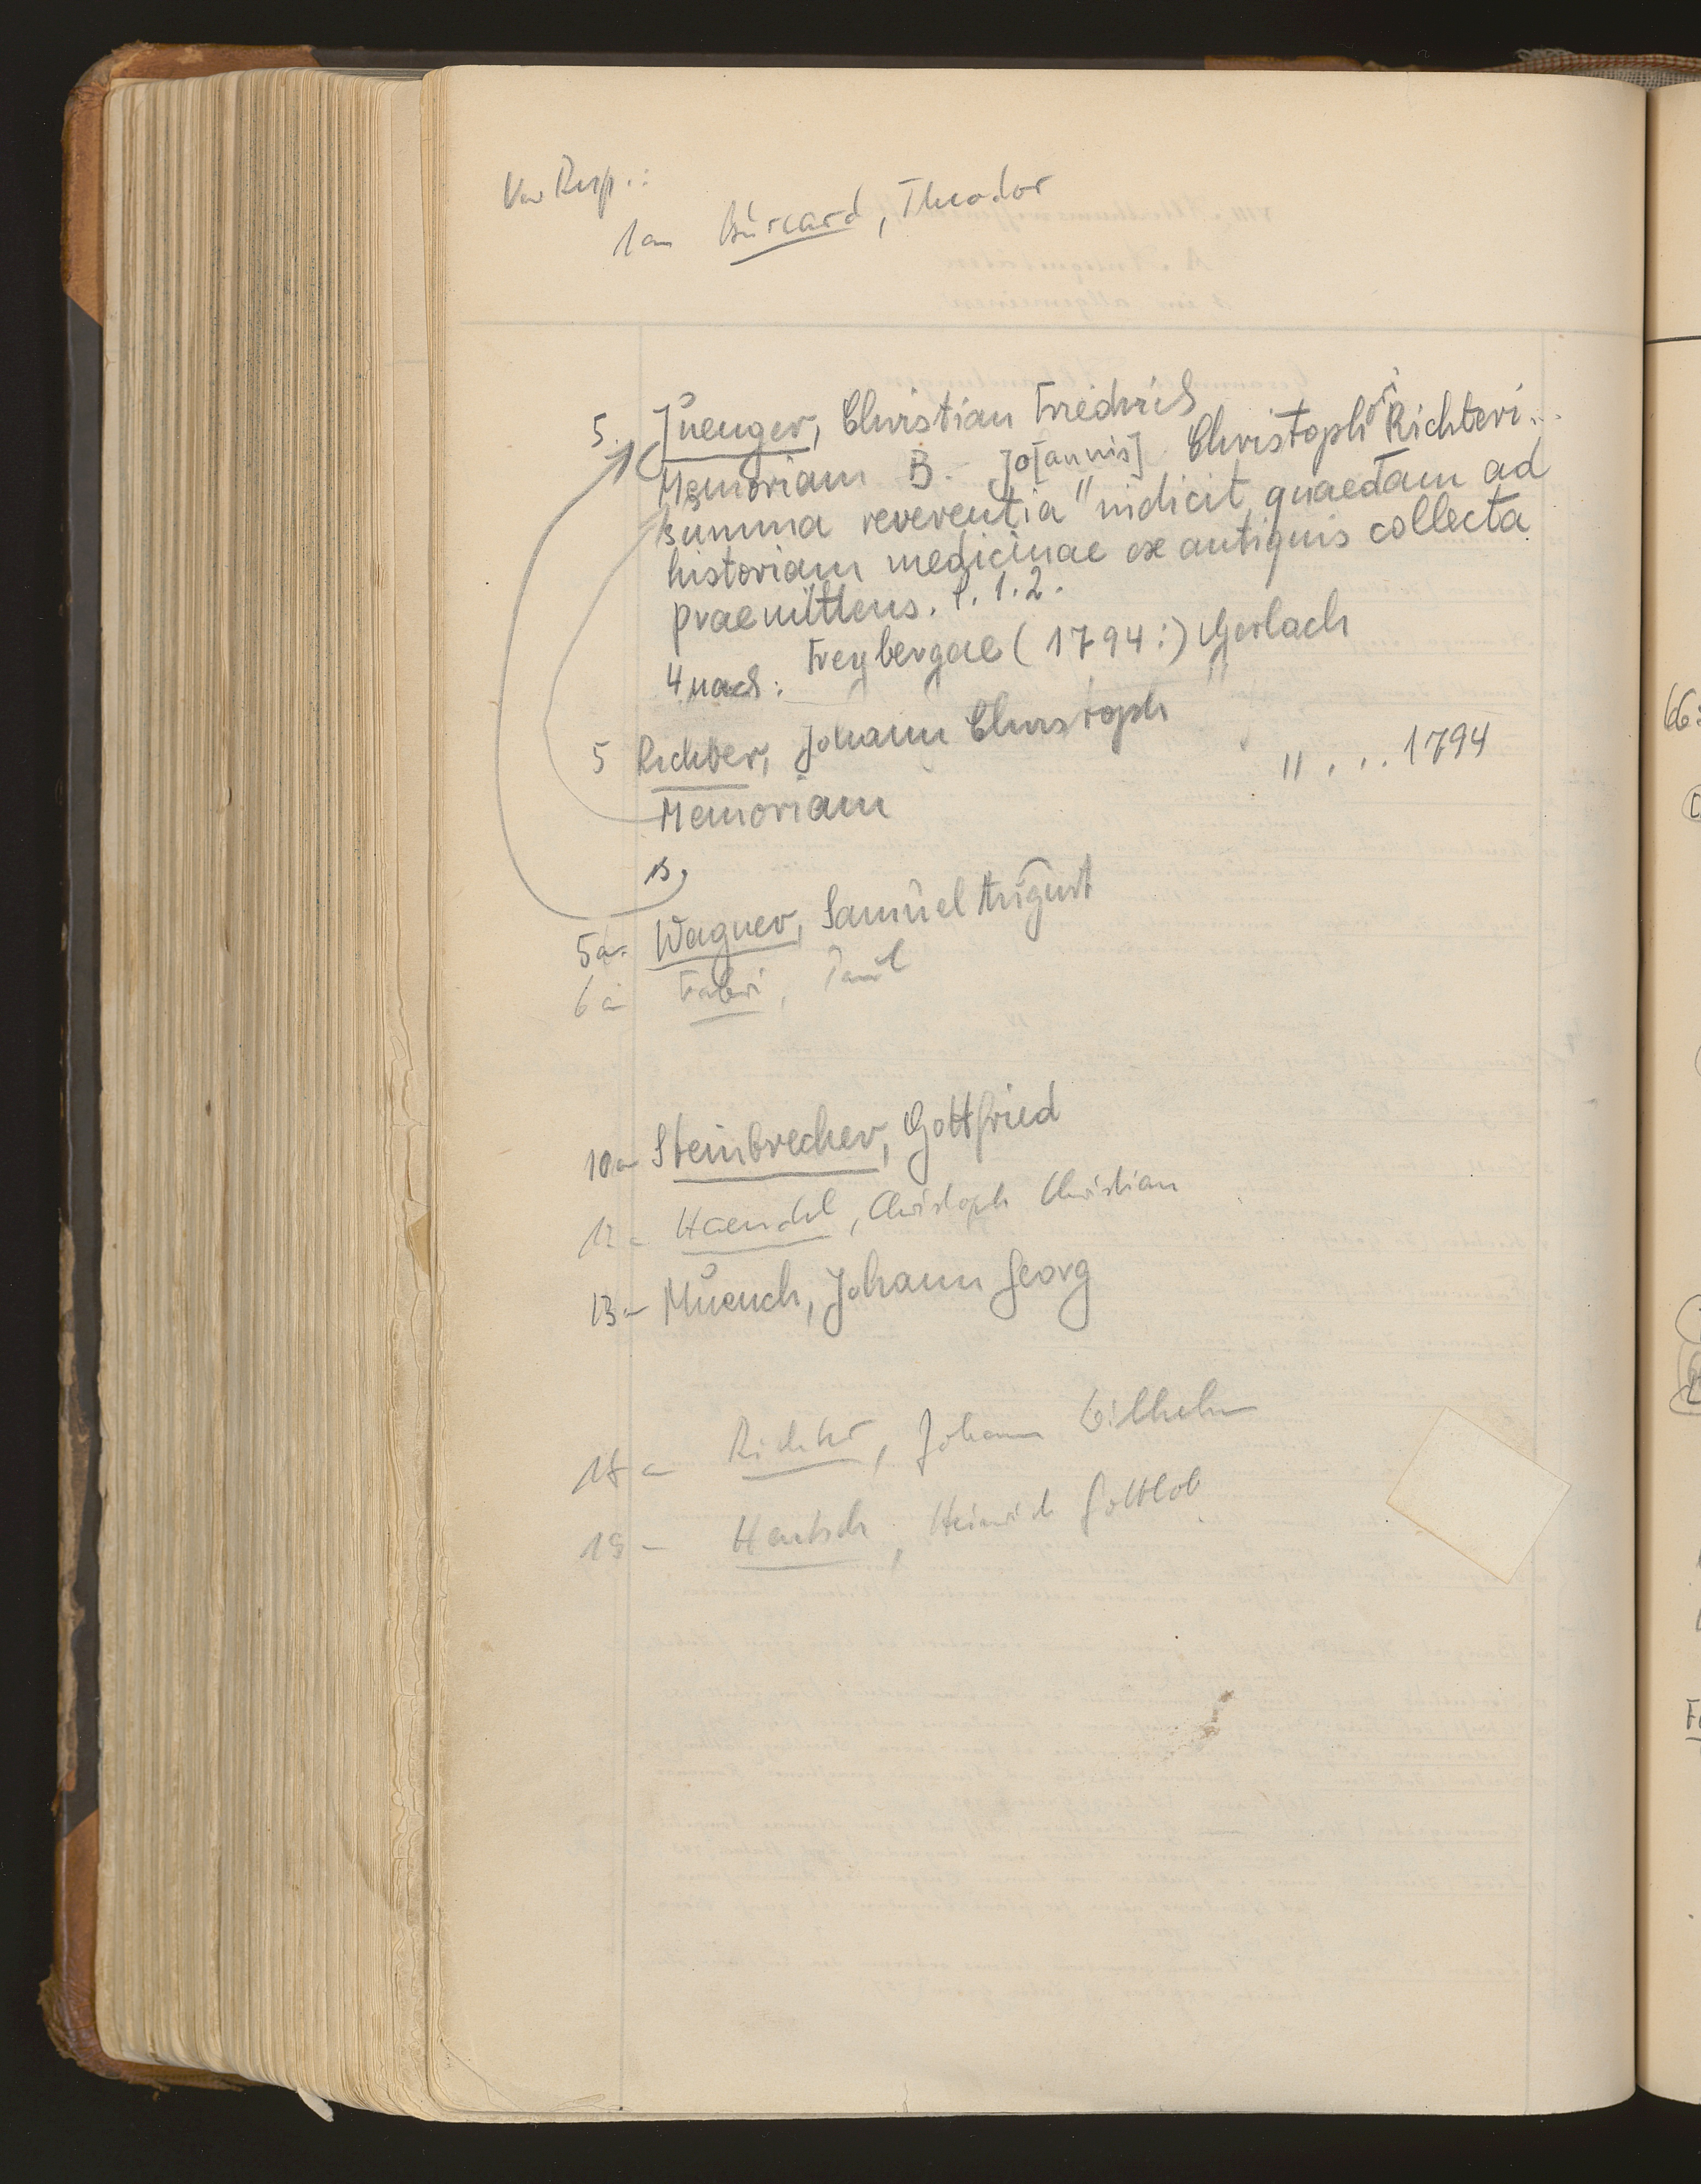 Resp.:
1a Burcard, Theodor
5. Juenger, Christian Friedrich
Memoriam B. Jo[annis] Christophori Richteri...
summa reverentia" indicit quaedam ad
historiam medicinae ex antiquis collecta
praemittens. P. 1. 2.
4 nach: Freybergae (1794:) Gerlach
5 Richter, Johann Christoph
" ... 1794
Memoriam
B,
5a. Wagner, Samuel August
6a Fabri, Paul
10a Steinbrecher, Gottfried
12a Haendel, Christoph Christian
13a Muench, Johann Georg
18a Richter, Johann Wilhelm
19a Hentsch, Heinrich Gottlob